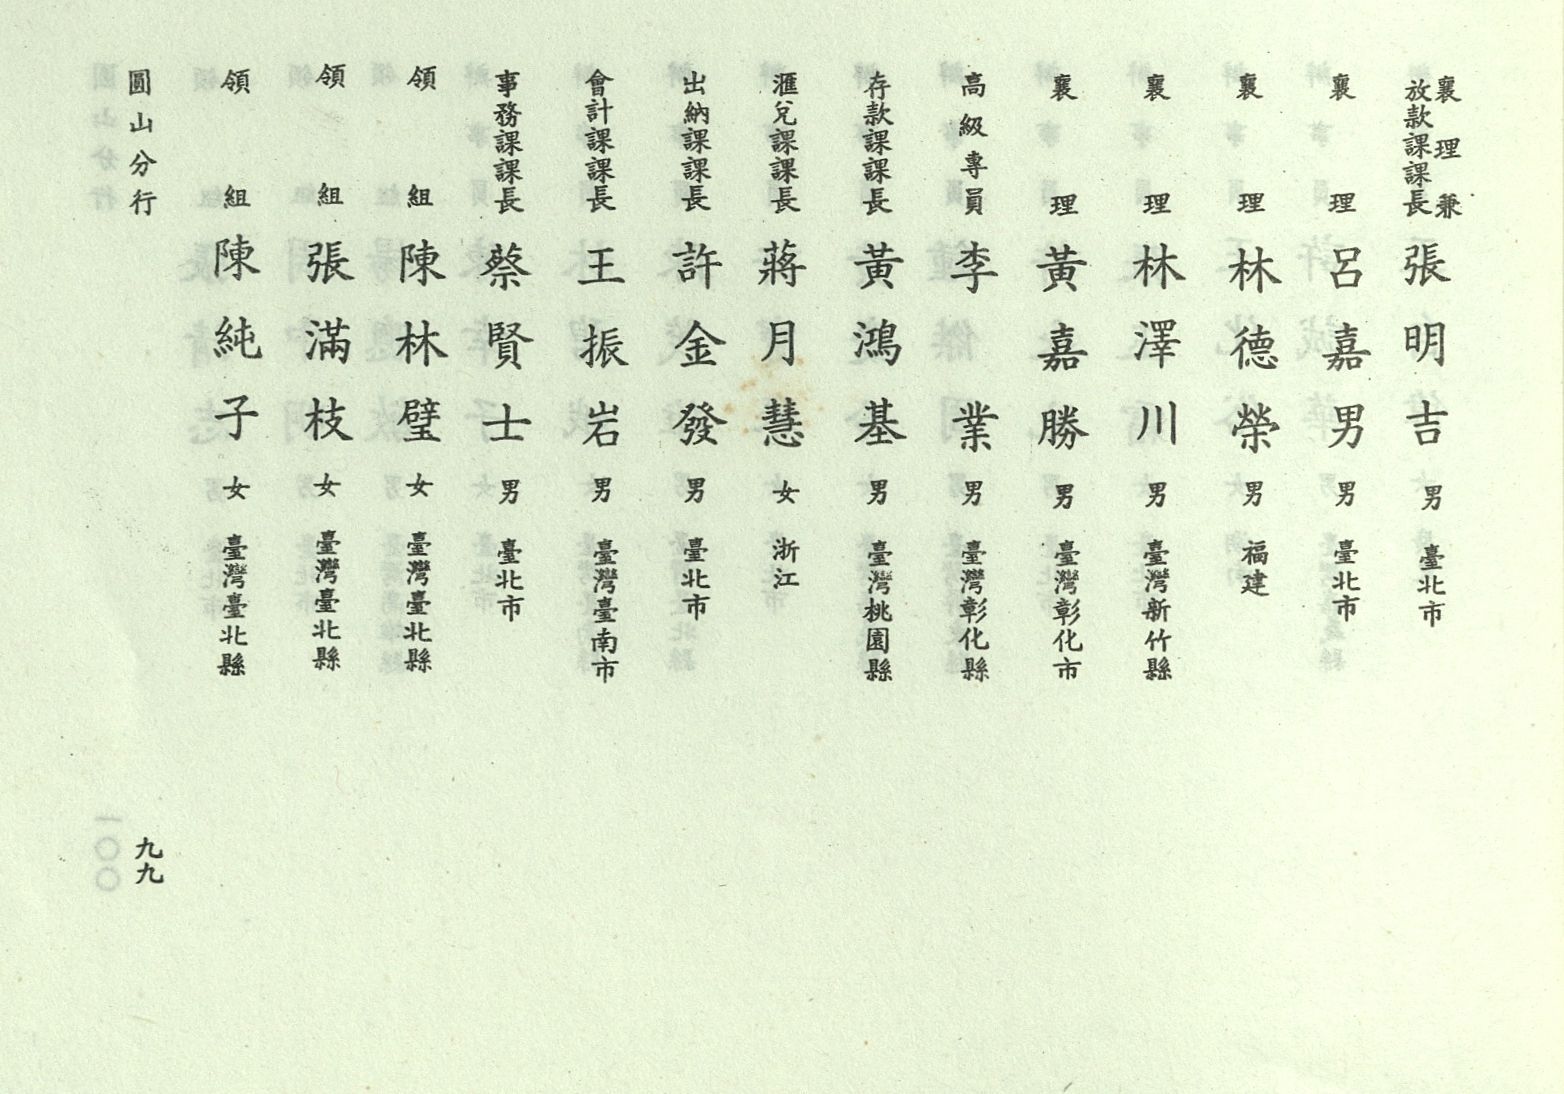 襄理兼放款課課長 張明吉 男 臺北市
襄理 呂嘉男 男 臺北市
襄理 林德榮 男 福建
襄理 林澤川 男 臺灣新竹縣
襄理 黃嘉勝 男 臺灣彰化市
高級專員 李傑業 男 臺灣彰化縣
存款課課長 黃鴻基 男 臺灣桃園縣
滙兌課課長 蔣月慧 女 浙江
出納課課長 許金發 男 臺北市
會計課課長 王振岩 男 臺灣臺南市
事務課課長 蔡賢士 男 臺北市
領組 陳林璧 女 臺灣臺北縣
領組 張滿枝 女 臺灣臺北縣
領組 陳純子 女 臺灣臺北縣
圓山分行
九九